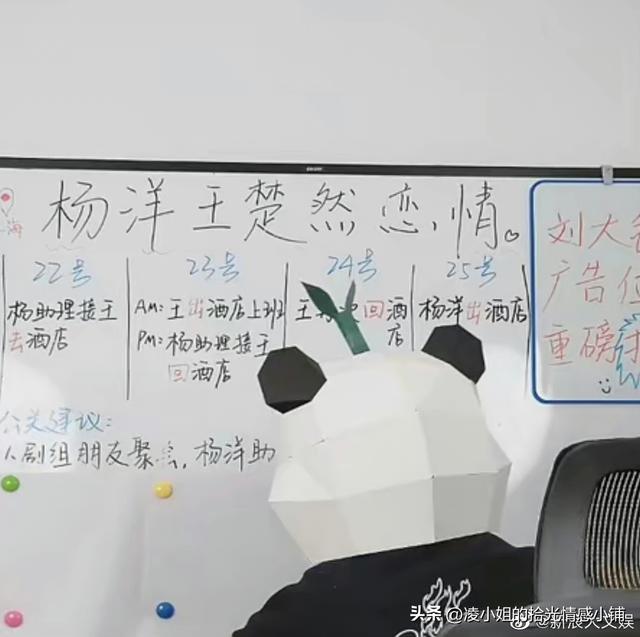 海
杨洋王楚然恋情。
22号
杨助理接王
去酒店
23号
AM:王出酒店上班
PM:杨助理接王
回酒店
24号
回酒
店
25号
杨洋出酒店
刘大
广告位
重磅
公关建议:
人剧组朋友聚会,杨洋助
头条 @凌小姐的拾光情感小铺
@新浪大文娱